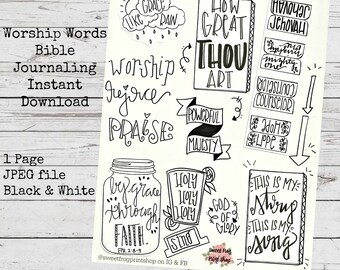 Worship Words
Bible
Journaling
Instant
Download
1 Page
JPEG file
Black & White
GRACE
LIKE RAIN
HOW
GREAT
THOU
ART
worship
rejoice
PRAISE
POWERFUL
MAJESTY
JEHOVAH
Almighty
Messiah
COUNSELOR
COUNSELOR
ABBA
ABBA
by grace
through
FAITH
EPH. 2:8-9
HOLY
HOLY
HOLY
GOD
OF
Glory
JESUS
THIS IS MY
Story
THIS IS MY
song
@sweetfrogprintshop on IG & FB